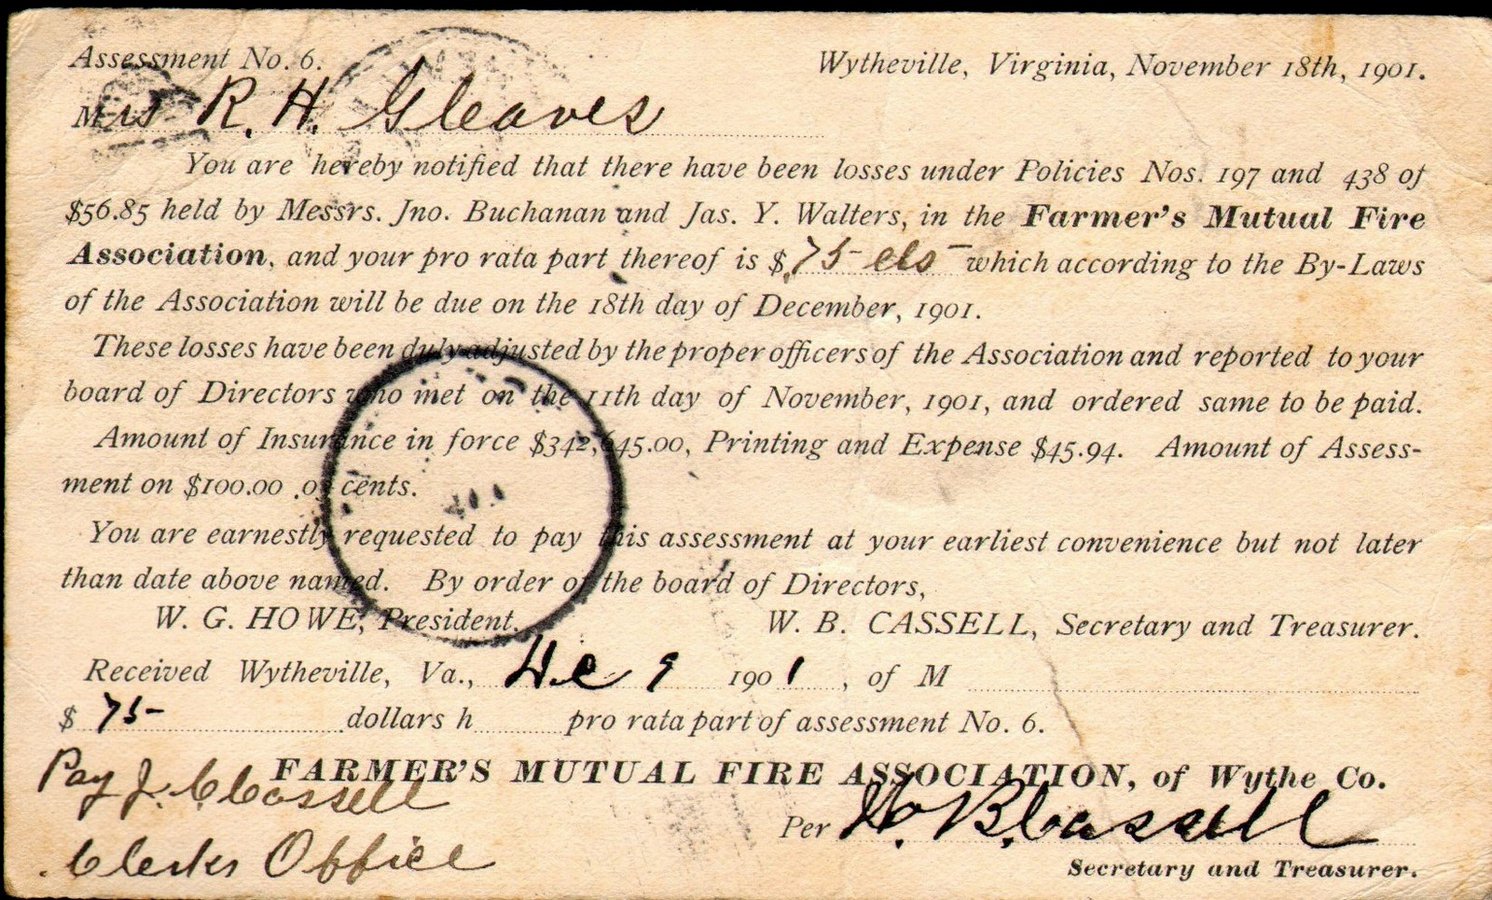 Assessment No. 6.
Wytheville, Virginia, November 18th, 1901.
Mrs R. H. Gleaves
You are hereby notified that there have been losses under Policies Nos. 197 and 438 of
$56.85 held by Messrs. Jno. Buchanan and Jas. Y. Walters, in the Farmer's Mutual Fire
Association, and your pro rata part thereof is $.75 cts which according to the By-Laws
of the Association will be due on the 18th day of December, 1901.
These losses have been duly adjusted by the proper officers of the Association and reported to your
board of Directors who met on the 11th day of November, 1901, and ordered same to be paid.
Amount of Insurance in force $342,645.00, Printing and Expense $45.94. Amount of Assess-
ment on $100.00 cents.
You are earnestly requested to pay this assessment at your earliest convenience but not later
than date above named. By order of the board of Directors,
W. G. HOWE, President.
W. B. CASSELL, Secretary and Treasurer.
Received Wytheville, Va., 9 1901, of M
$ 75 dollars h pro rata part of assessment No. 6.
FARMER'S MUTUAL FIRE ASSOCIATION, of Wythe Co.
Pay J. C. Cassell
Per W. B. Cassell
Clerks Office
Secretary and Treasurer.